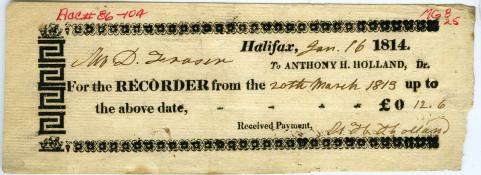 Acc# 86-104
MG 8
25
Halifax, Jan. 16 1814.
Mr D. Fraser
To ANTHONY H. HOLLAND, Dr.
For the RECORDER from the 20th March 1813 up to
the above date, - - - - £0 12.6
Received Payment, A H Holland